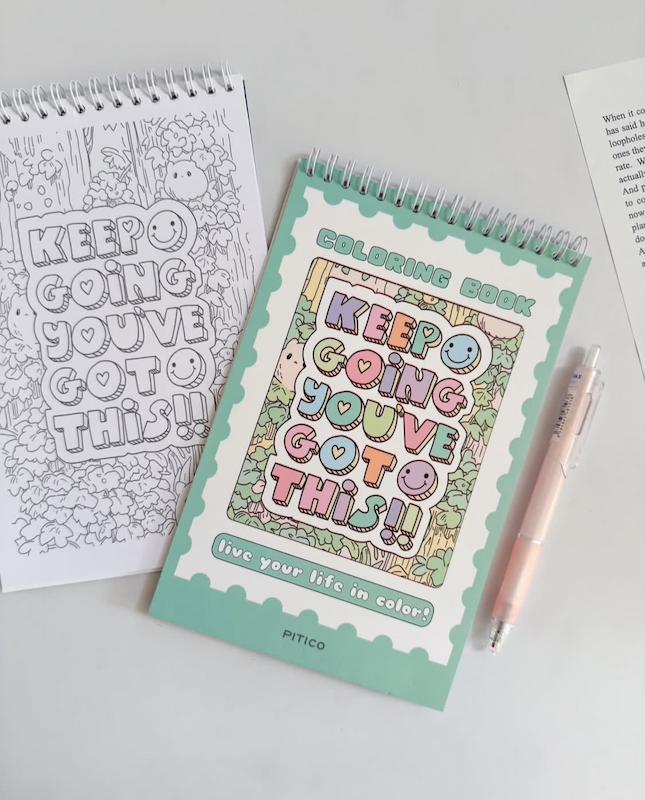 KEEP
GOING
YOU'VE
GOT
THIS!!
COLORING BOOK
KEEP
GOING
YOU'VE
GOT
THIS!!
live your life in color!
PITICO
When it
has said
loopholes
ones
rate.
actually
And
to
now